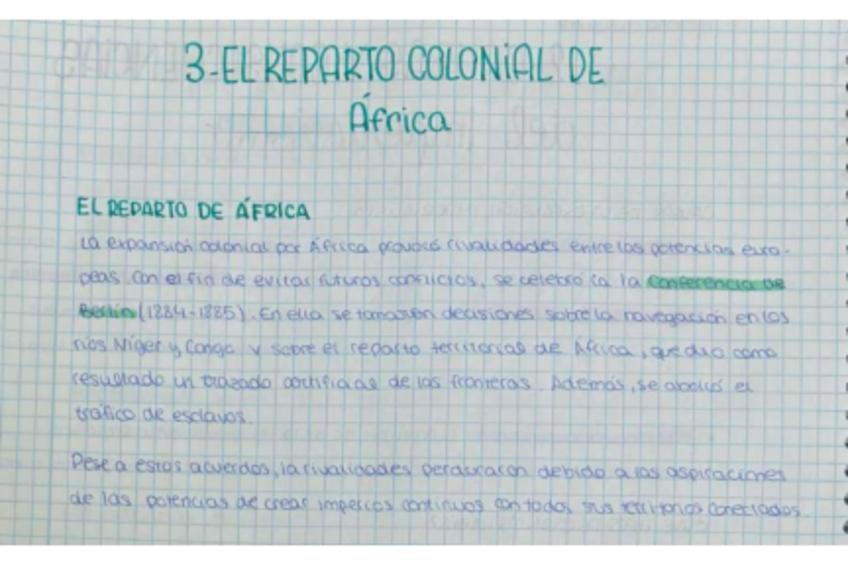 3-EL REPARTO COLONIAL DE
África
EL REPARTO DE ÁFRICA
La expansión colonial por África provocó rivalidades entre las potencias euro-
peas. Con el fin de evitar futuros conflictos, se celebró la la Conferencia de
Berlín (1884-1885). En ella se tomaron decisiones sobre la navegación en los
ríos Níger y Congo y sobre el reparto territorial de África, que dio como
resultado un trazado artificial de las fronteras. Además, se abolió el
tráfico de esclavos.
Pese a estos acuerdos, la rivalidades perduraron debido a las aspiraciones
de las potencias de crear imperios continuos con todos sus territorios conectados.